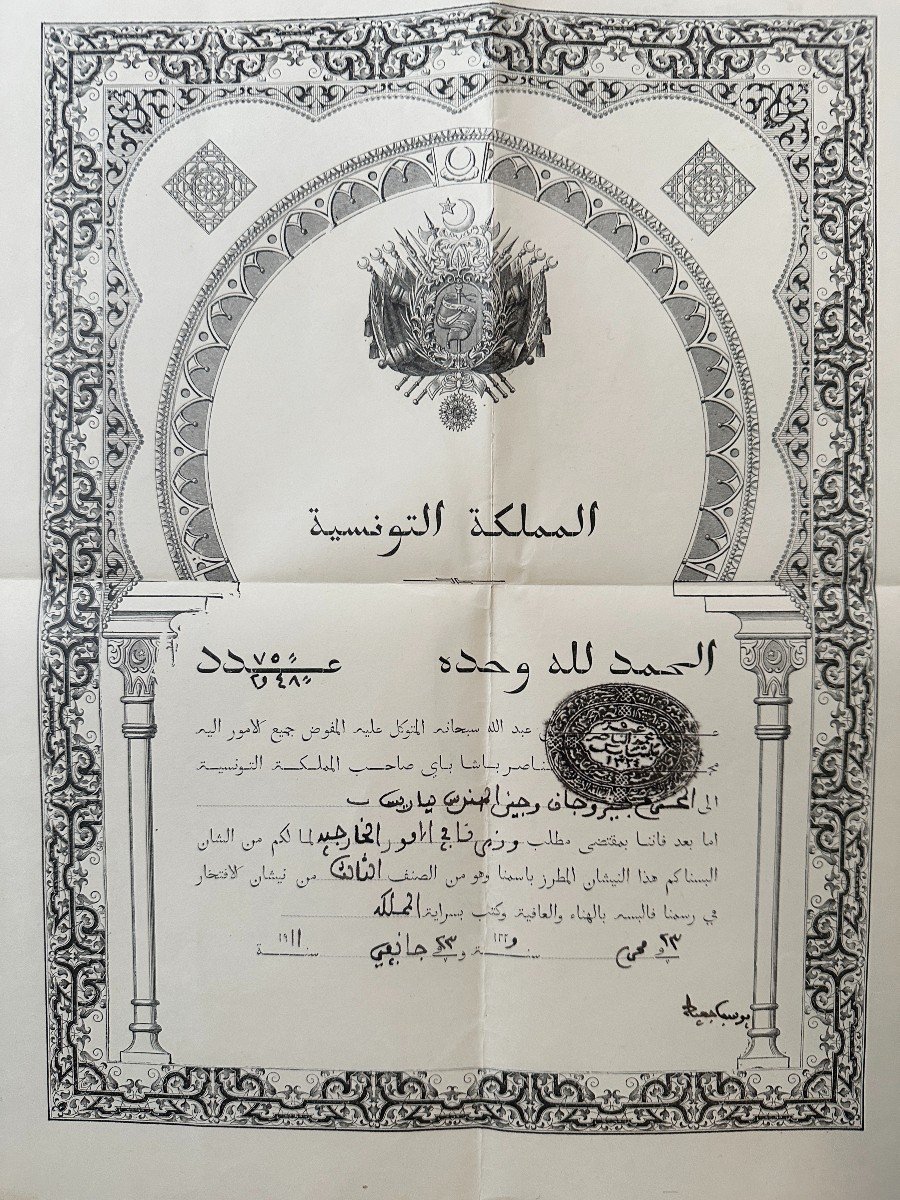 المملكة التونسية
الحمد لله وحده عـــدد
عبد الله سبحانه المتوكل عليه المفوض جميع الامور اليه
محمد الناصر باشا باي صاحب المملكة التونسية
الى المهندس بباريس
اما بعد فاننا بمقتضى مطلب وزيرنا في الامور الخارجيه لما لكم من الشان
البسناكم هذا النيشان المطرز باسمنا وهو من الصنف الثالث من نيشان الافتخار
في رسمنا فالبسه بالهناء والعافية وكتب بسراية المملكه
في ٢٣ محرم سنة وفي ٢٣ جانفي سنة ١٩١١